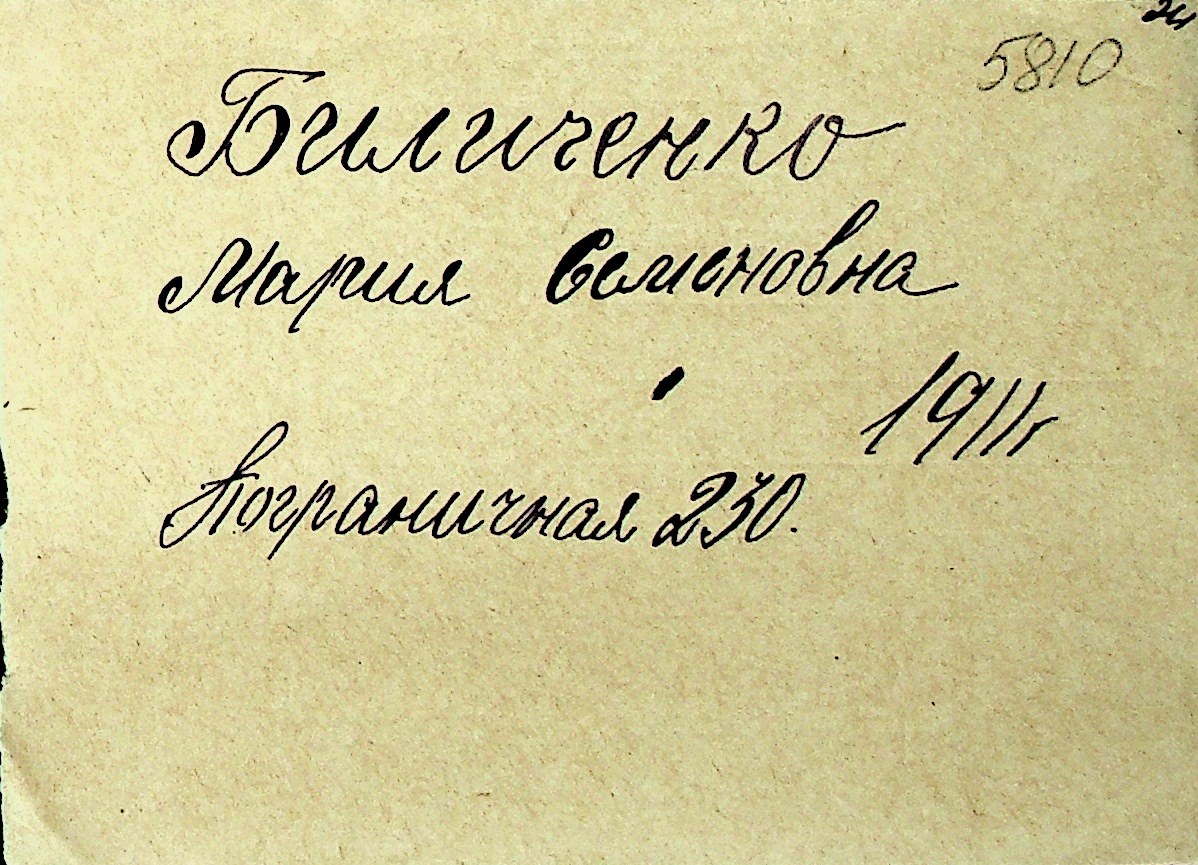 5810
Биличенко
Мария Семеновна
1911г
Пограничная 230.